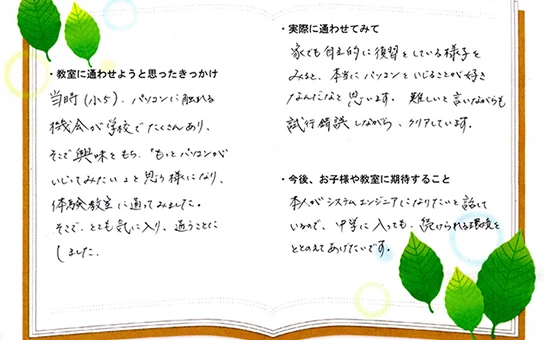 ・教室に通わせようと思ったきっかけ
当時(小5)、パソコンに触れる
機会が学校でたくさんあり、
そこで興味をもち、「もっとパソコンが
いじってみたい」と思う様になり、
体験教室に通ってみました。
そこで、とても気に入り、通うことに
しました。
・実際に通わせてみて
家でも自主的に復習をしている様子を
みると、本当にパソコンをいじることが好き
なんだなと思います。難しいと言いながらも
試行錯誤しながら、クリアしています。
・今後、お子様や教室に期待すること
本人がシステムエンジニアになりたいと話して
いるので、中学に入っても、続けられる環境を
ととのえてあげたいです。